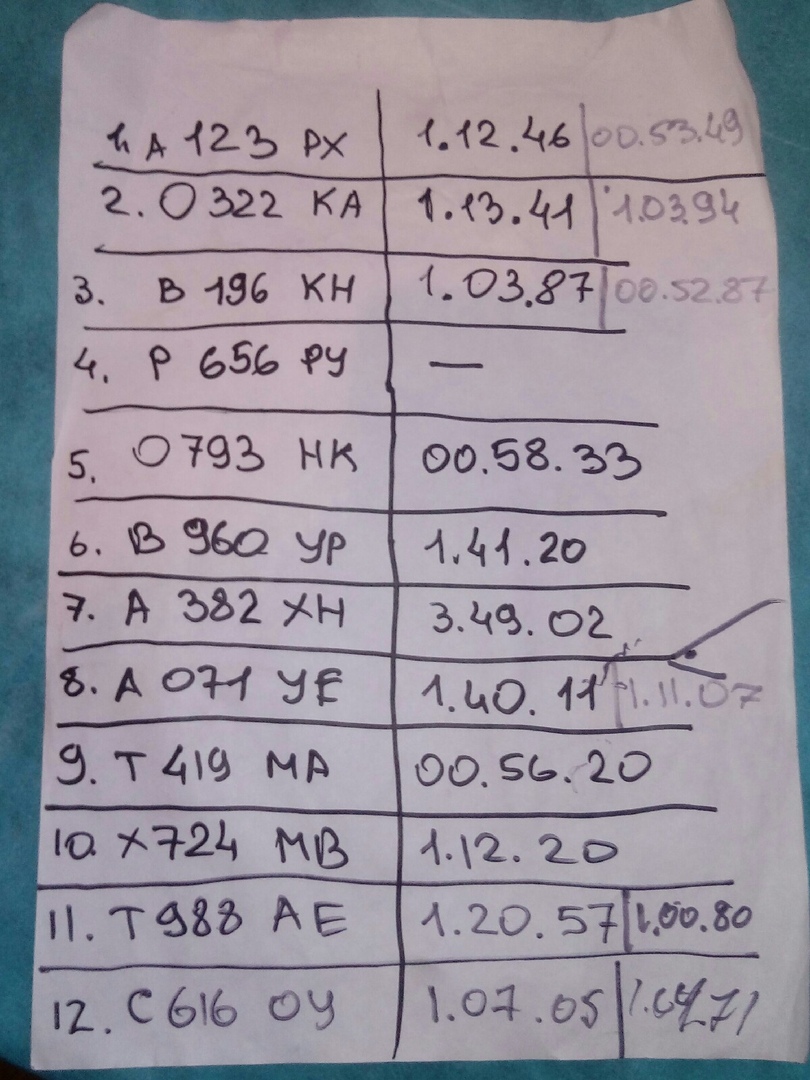 1. А 123 РХ 1.12.46 00.53.49
2. О 322 КА 1.13.41 1.03.94
3. В 196 КН 1.03.87 00.52.87
4. Р 656 РУ —
5. О 793 НК 00.58.33
6. В 960 УР 1.41.20
7. А 382 ХН 3.49.02
8. А 071 УЕ 1.40.11 1.11.07
9. Т 419 МА 00.56.20
10. Х 724 МВ 1.12.20
11. Т 988 АЕ 1.20.57 1.00.80
12. С 616 ОУ 1.07.05